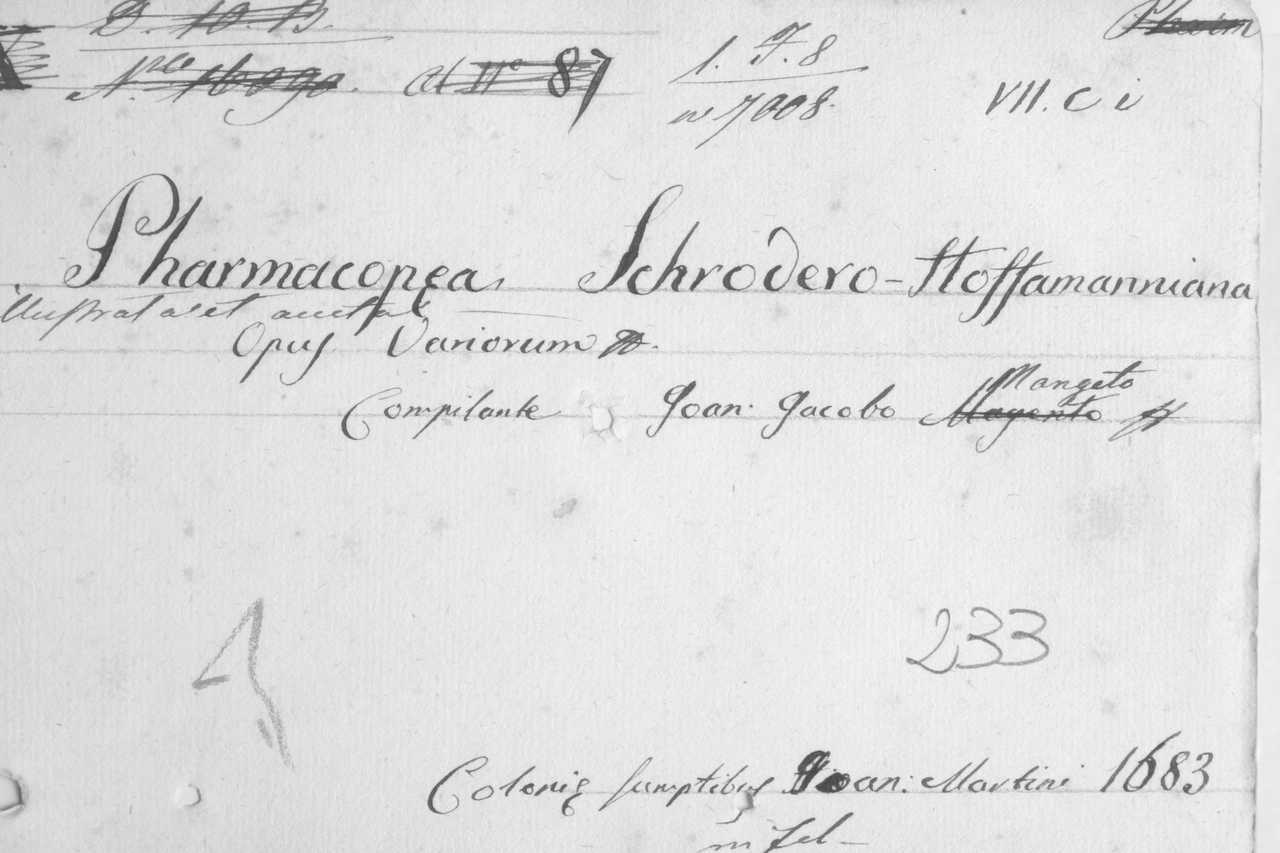 D. 10. B.
N.ro 16090. al N.o 87
1. F. 8
n 7008.
VII. C i
Pharmacopęa Schrodero-Hoffamanniana
illustrata et aucta
Opus Variorum
Compilante Joan. Jacobo Magento Mangeto
233
Colonię sumptibus Joan: Martini 1683
in fol-